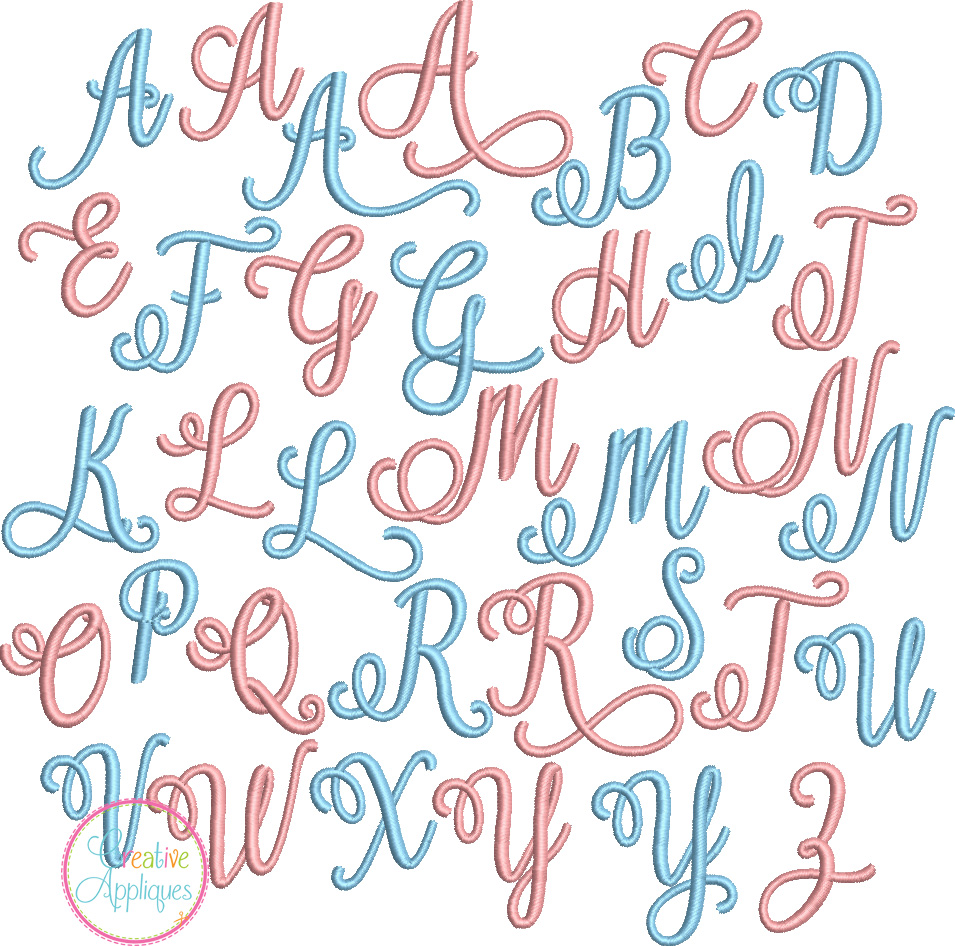 A A A A B C D
E F G G H I J
K L L M M N N
O P Q R R S T U
V W X Y Y Z
Creative
Appliques